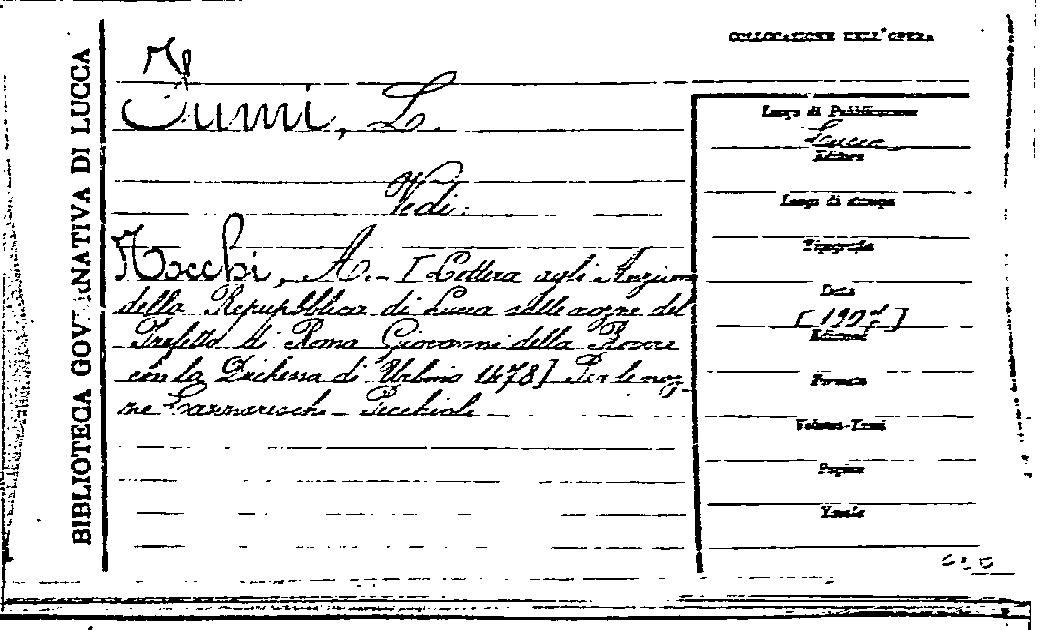 BIBLIOTECA GOVERNATIVA DI LUCCA
COLLOCAZIONE DELL'OPERA
Fumi, L.
Vedi:
Rocchi, A. - [Lettera agli Anziani
della Repubblica di Lucca sulle nozze del
Prefetto di Roma Giovanni della Rovere
con la Duchessa di Urbino 1478] Per le noz-
ze
Luogo di Pubblicazione
Lucca
Editore
Luogo di stampa
Tipografia
Data
Edizione
Formato
Volumi-Tomi
Pagine
Tavole